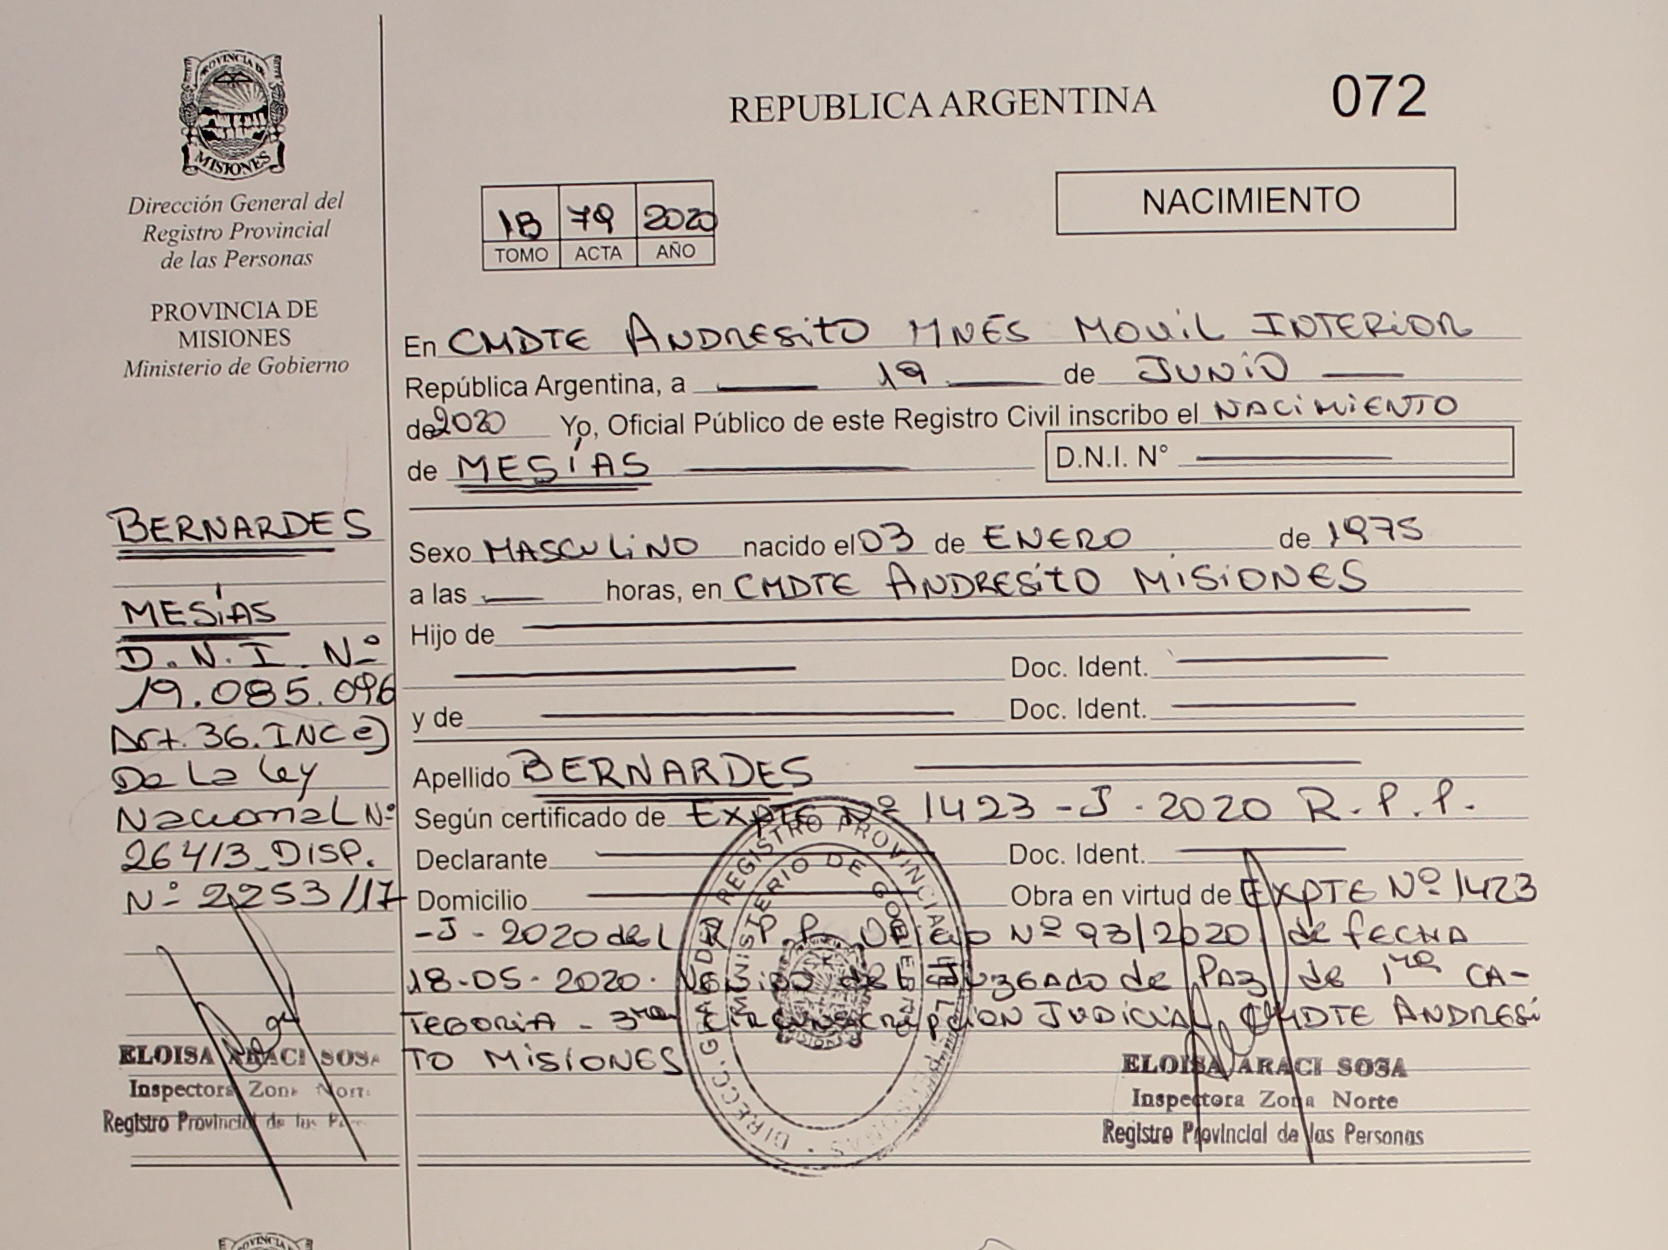 PROVINCIA DE
MISIONES
Dirección General del
Registro Provincial
de las Personas
PROVINCIA DE
MISIONES
Ministerio de Gobierno
BERNARDES
MESÍAS
D.N.I. Nº
19.085.096
Art. 36. INC e)
De La Ley
Nacional Nº
26413 DISP.
Nº 2253/17
ELOISA ARACI SOSA
Inspectora Zona Norte
Registro Provincial de las
REPUBLICA ARGENTINA
072
NACIMIENTO
1B 79 2020
TOMO ACTA AÑO
En CMDTE ANDRESITO MNES MOVIL INTERIOR
República Argentina, a 19 de JUNIO
de 2020 Yo, Oficial Público de este Registro Civil inscribo el NACIMIENTO
de MESÍAS D.N.I. N°
Sexo MASCULINO nacido el 03 de ENERO de 1975
a las horas, en CMDTE ANDRESITO MISIONES
Hijo de
Doc. Ident.
y de Doc. Ident.
Apellido BERNARDES
Según certificado de EXPTE Nº 1423-J-2020 R.P.P.
Declarante Doc. Ident.
Domicilio Obra en virtud de EXPTE Nº 1423
-J-2020 del R.P.P. OFICIO Nº 93/2020 de FECHA
18-05-2020. del JUZGADO de PAZ de 1ra CA-
TEGORIA - 3ra CIRCUNSCRIPCION JUDICIAL CMDTE ANDRESI
TO MISIONES
DIRECC. GRAL. DEL REGISTRO PROVINCIAL DE LAS PERSONAS
MINISTERIO DE GOBIERNO
MISIONES
ELOISA ARACI SOSA
Inspectora Zona Norte
Registro Provincial de las Personas